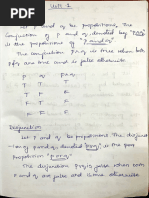 Unit-1
Let P and q be propositions, the
conjunction of P and q, denoted by "p∧q"
is the propositions of "p and q"
The conjunction P∧q is true when both
P q are true and is false otherwise
P q P∧q
T T T
T F F
F T F
F F F
Disjunction
Let P and q be propositions. The
of P and q denoted p∨q is the
Proposition "p or q".
The disjunction P∨q is false when both
P and q are false and is true otherwise.